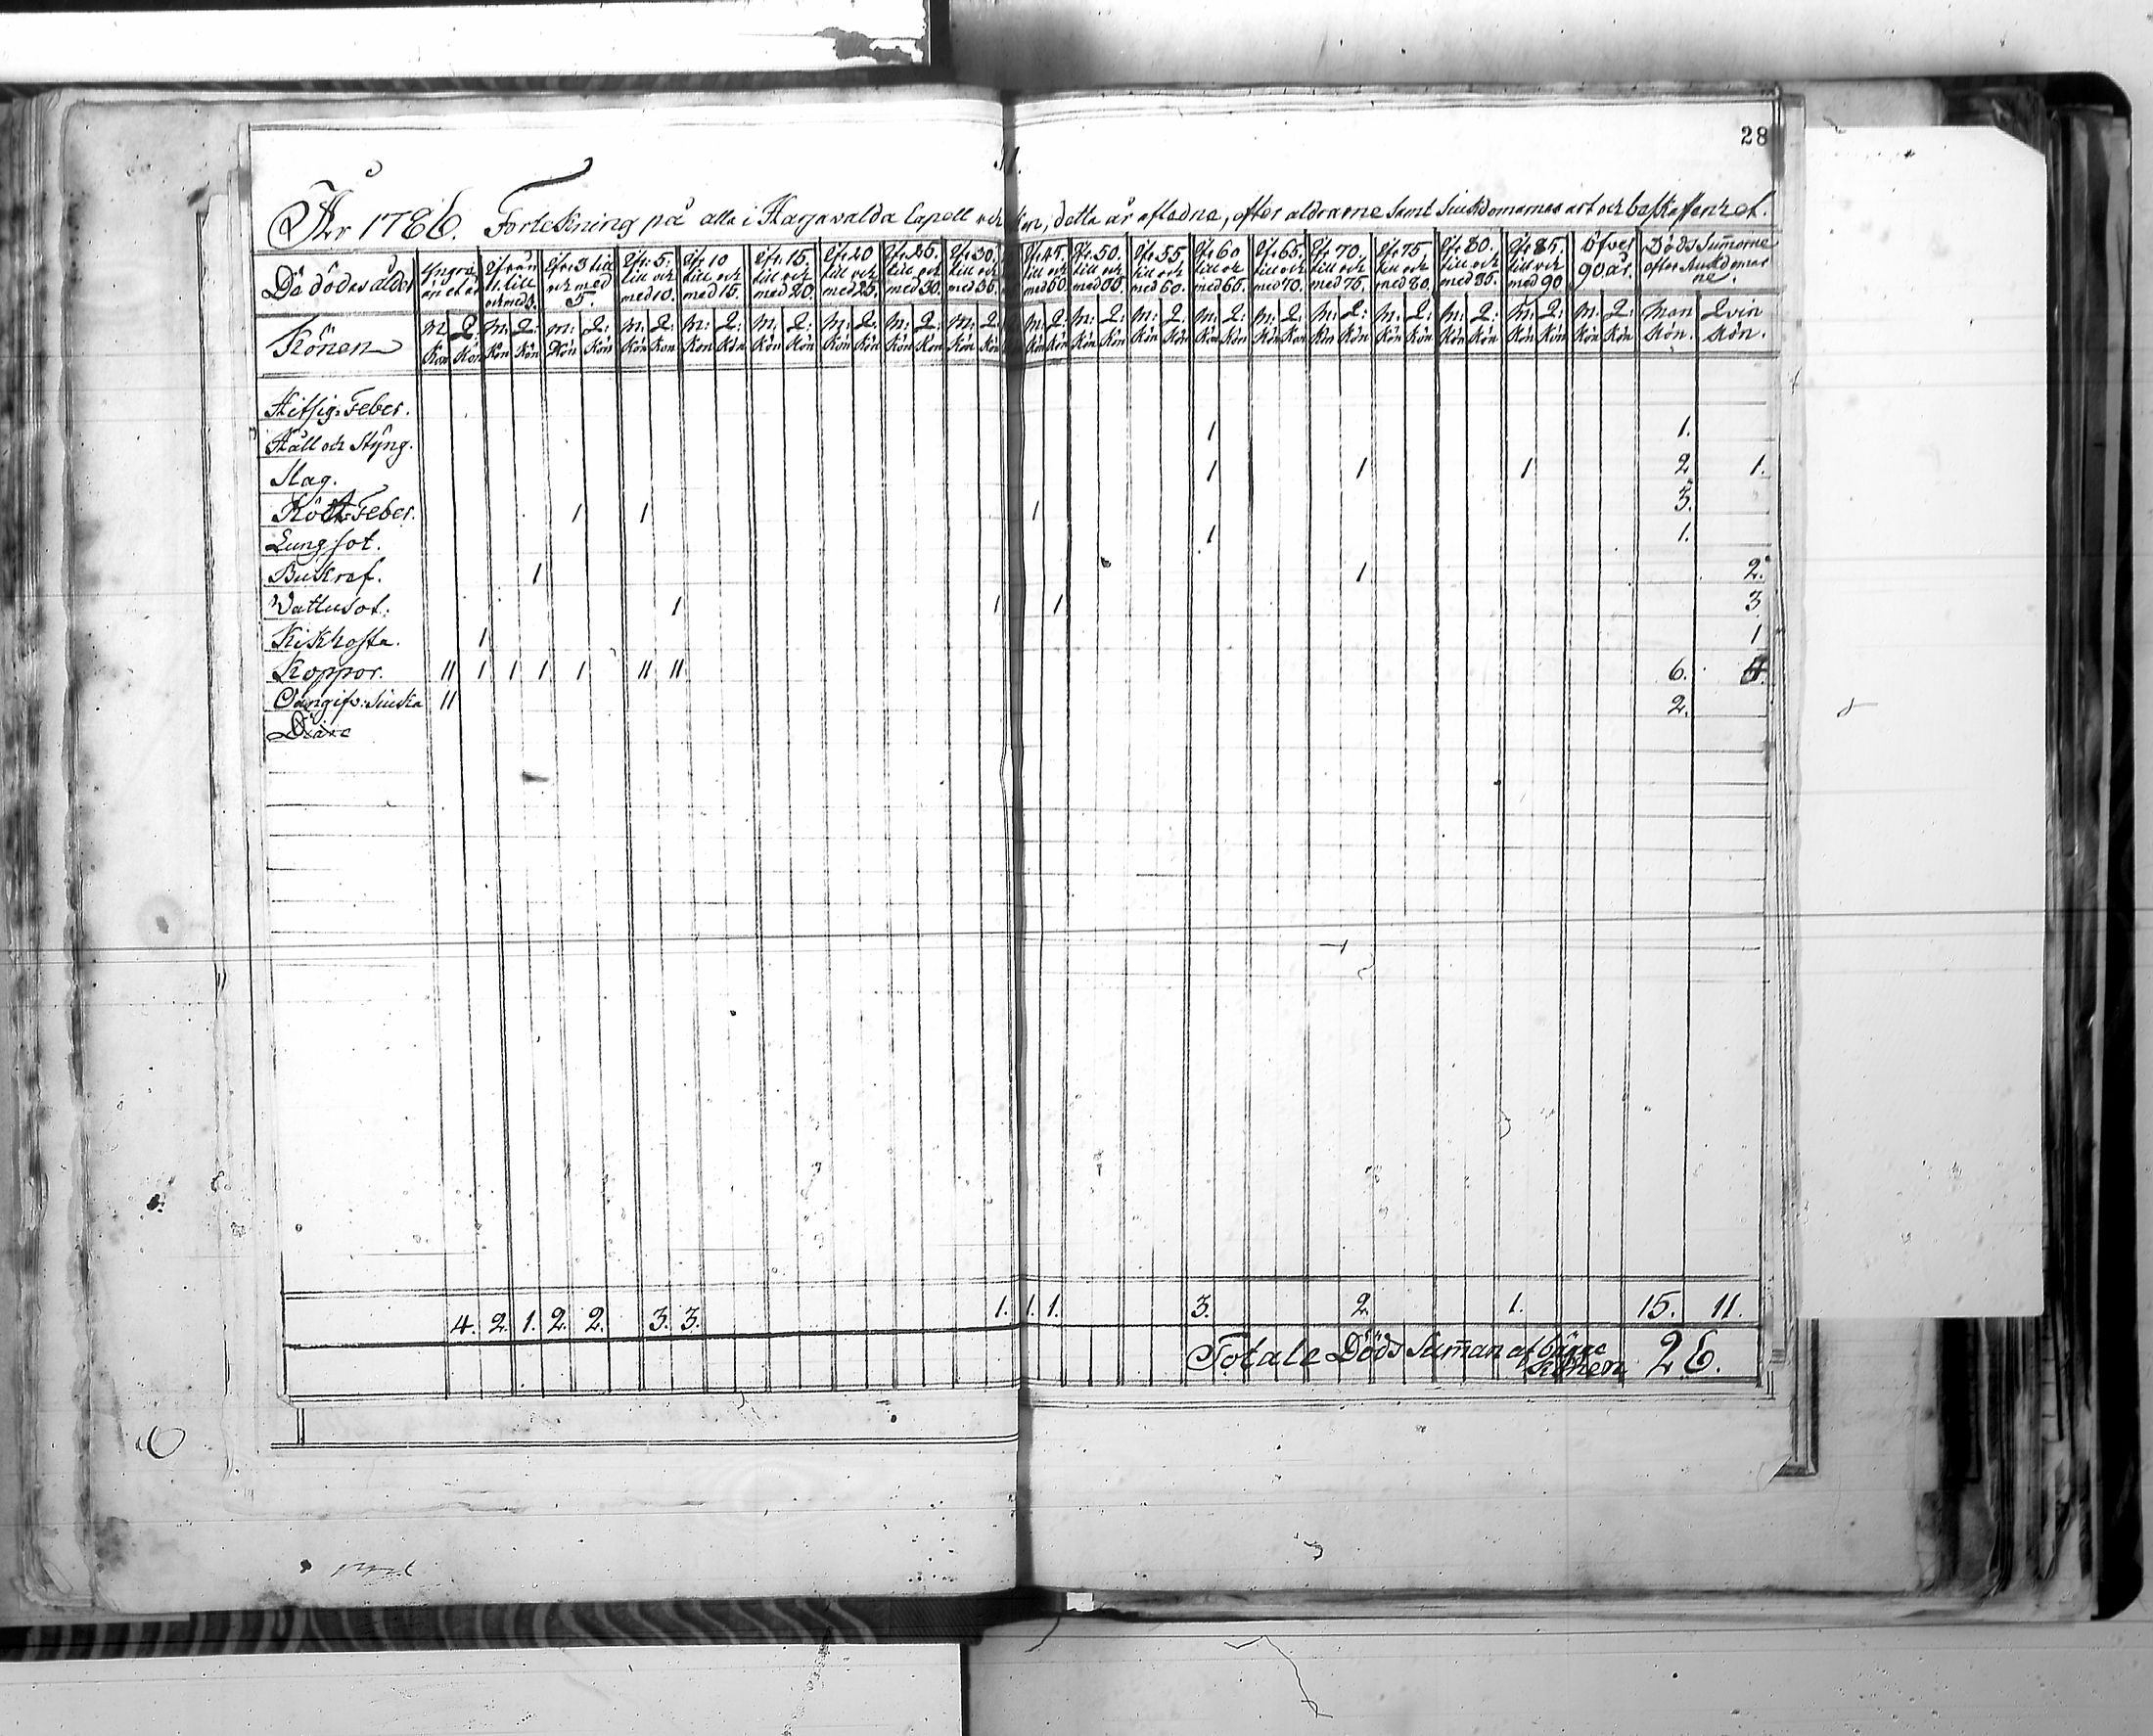 28
År 1786. Förtekning på alla i Harjavalda Capell detta år afledne, efter åldrarne samt Siukdomarnas art och beskaffenhet.
De dödas ålder Yngre än et år Ifrån 1. till och med 3. Ifr: 3 till och med 5. Ifr: 5. till och med 10. Ifr: 10 till och med 15. Ifr: 15. till och med 20. Ifr: 20 till och med 25. Ifr: 25. till och med 30. Ifr: 30. till och med 35. Ifr: 45. till och med 50. Ifr: 50. till och med 55. Ifr: 55 till och med 60. Ifr: 60 till och med 65. Ifr: 65. till och med 70. Ifr: 70. till och med 75. Ifr: 75 till och med 80. Ifr: 80. till och med 85. Ifr: 85. till och med 90 öfver 90 år. Döds Summorne efter Siukdomarne.
Könen M: Kön Q: Kön M: Kön Q: Kön M: Kön Q: Kön M: Kön Q: Kön M: Kön Q: Kön M: Kön Q: Kön M: Kön Q: Kön M: Kön Q: Kön M: Kön Q: Kön M: Kön Q: Kön M: Kön Q: Kön M: Kön Q: Kön M: Kön Q: Kön M: Kön Q: Kön M: Kön Q: Kön M: Kön Q: Kön M: Kön Q: Kön M: Kön Q: Kön M: Kön Q: Kön Man Kön. Qvin Kön.
Hitsig-Feber.
Håll och Styng. 1 1.
Slag. 1 1 1 2 1.
Röt-Feber. 1 1 1 3.
Lungsot. 1 1.
Bukref. 1 1 2.
Vattusot. 1 1 1 3
Kikhosta. 1 1
Koppor. 11 1 1 1 1 11 11 6. 4.
Oangifv: Siuka 11 2.
4. 2 1. 2 2. 3. 3. 1. 1. 1. 3. 2 1. 15. 11.
Totale Döds Summan af bägge Könen 26.